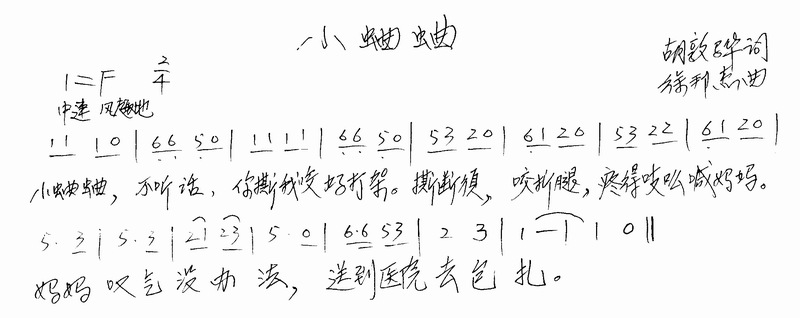 小蛐蛐
胡敦骅 词
1=F 2/4
徐邦杰 曲
中速 风趣地
11 10 | 66 50 | 11 11 | 66 50 | 53 20 | 61 20 | 53 22 | 61 20 |
小蛐蛐，不听话，你撕我咬好打架。撕断须，咬折腿，疼得吱吱喊妈妈。
5· 3 | 5· 3 | 21 23 | 5· 0 | 6·6 53 | 2 3 | 1 — | 1 0 ||
妈妈叹气没办法，送到医院去包扎。